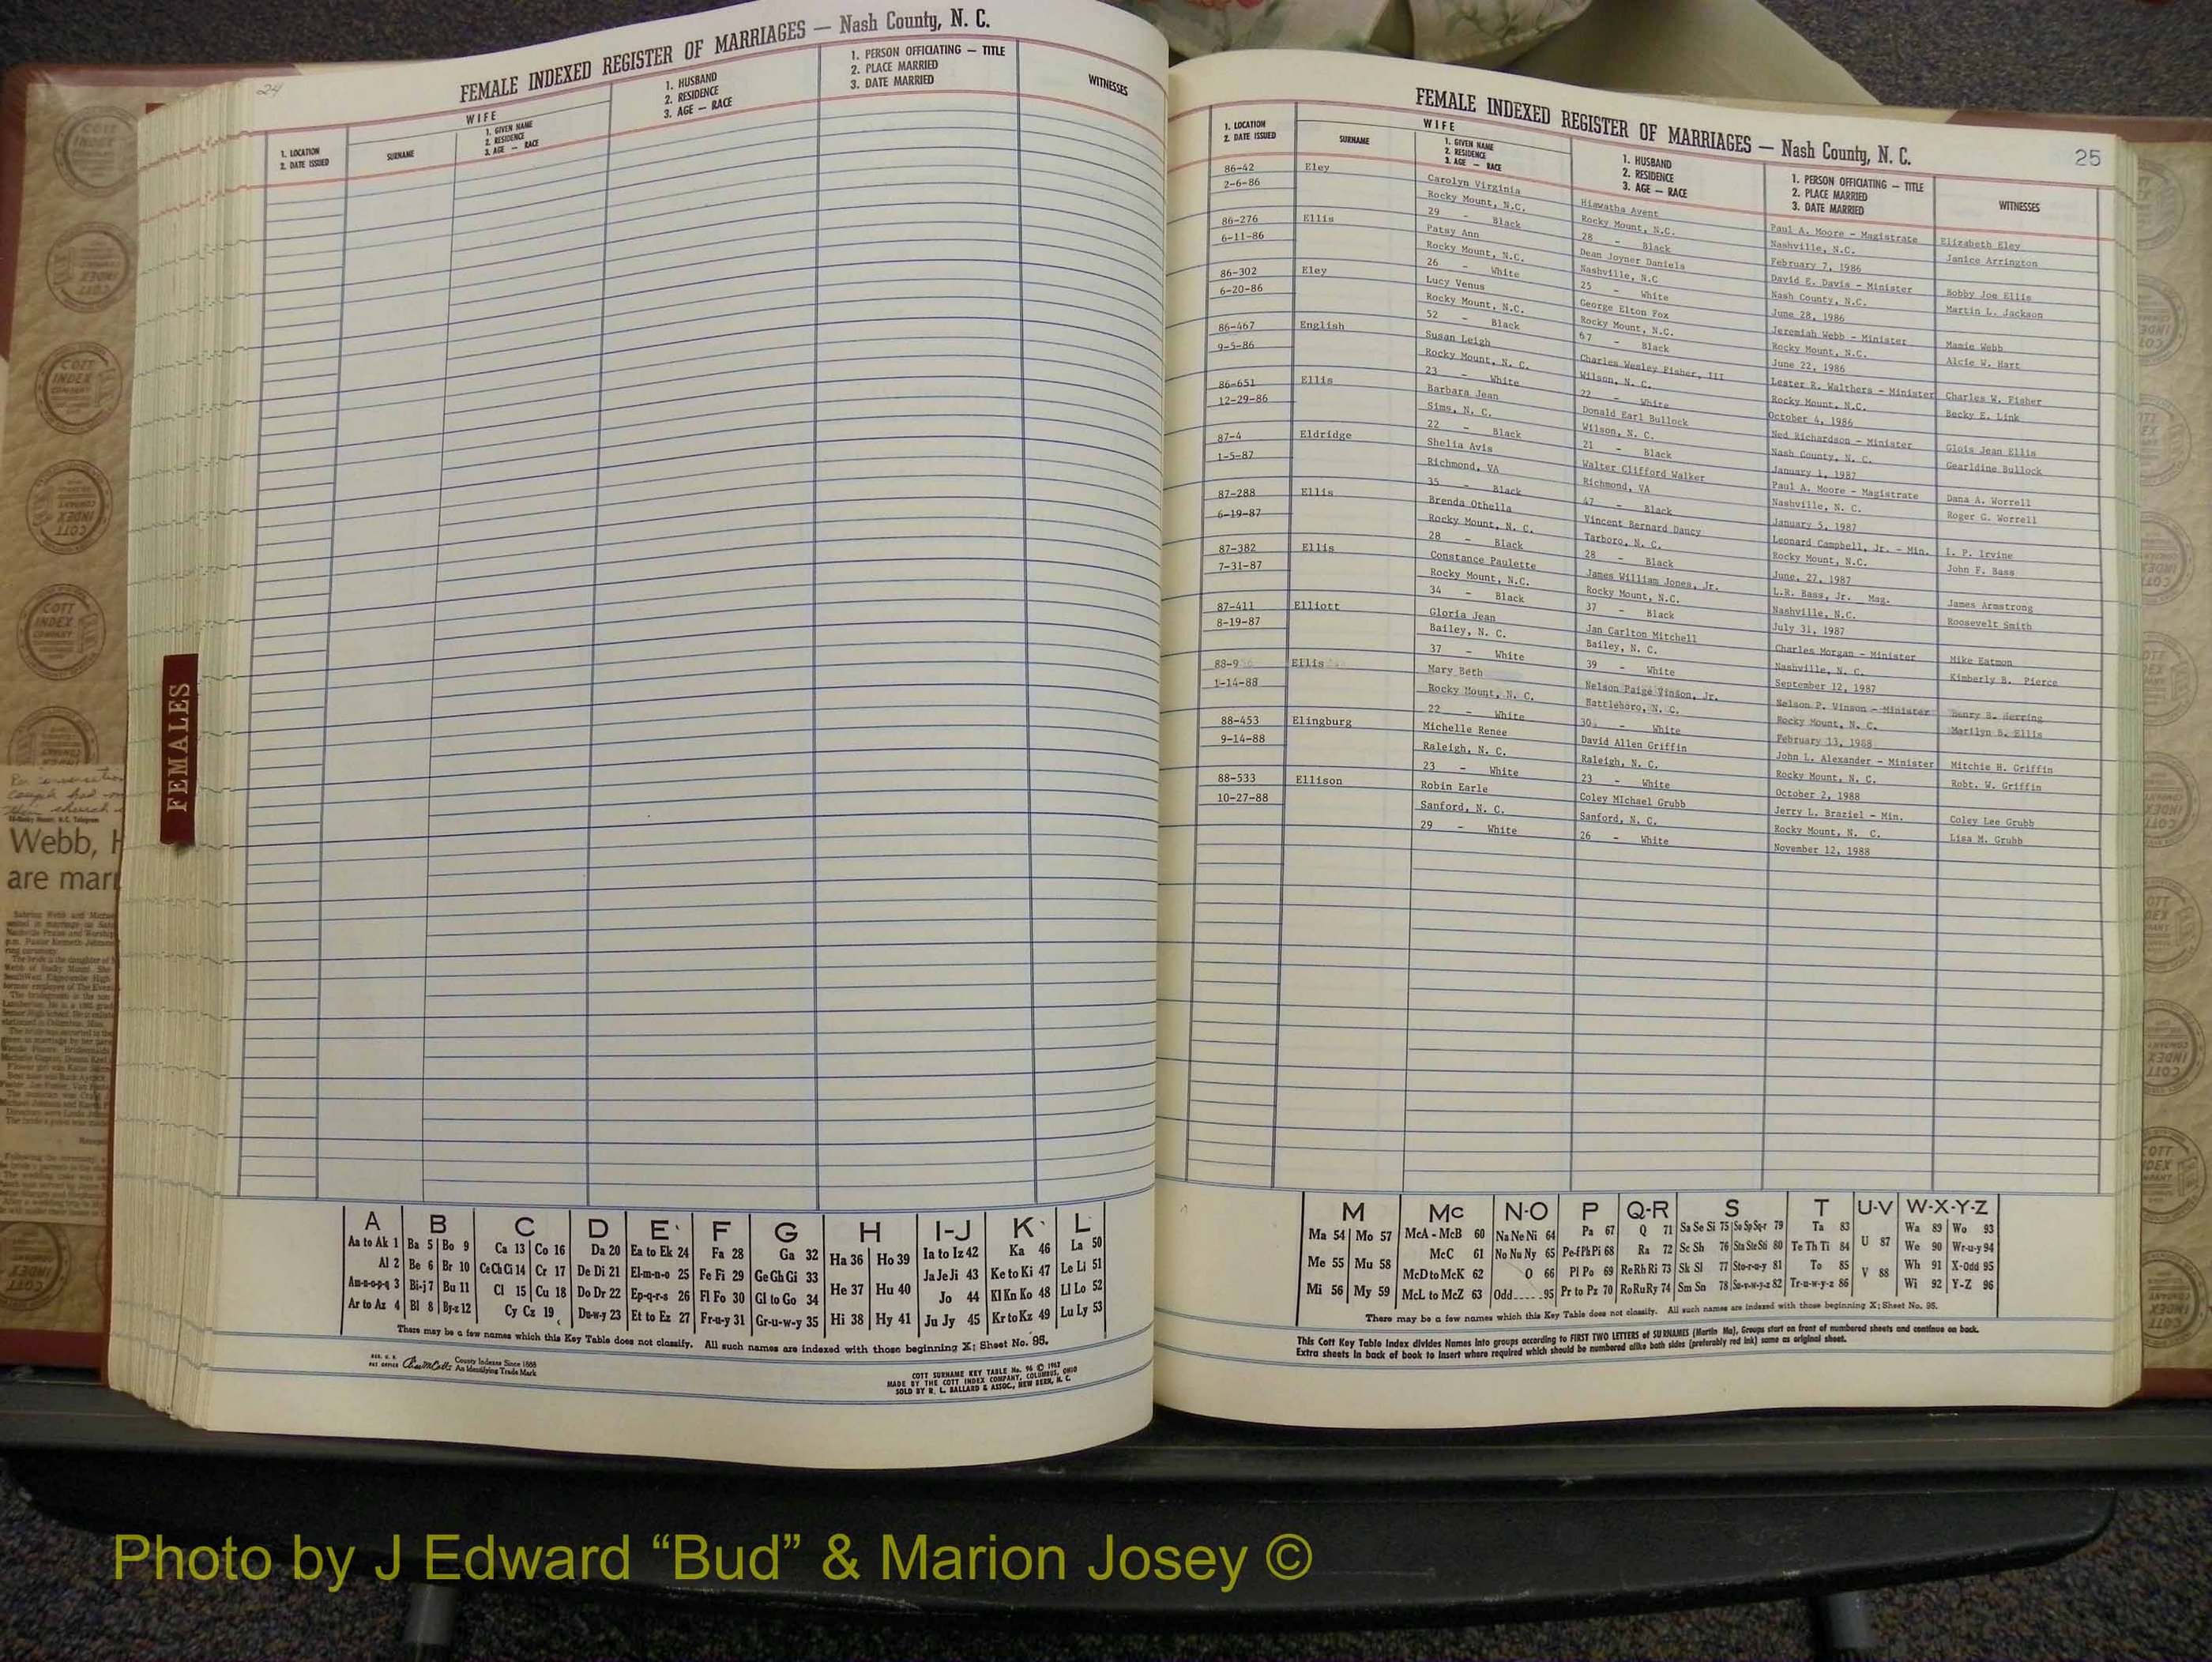 24
FEMALE INDEXED REGISTER OF MARRIAGES — Nash County, N. C.
1. LOCATION
2. DATE ISSUED
WIFE
SURNAME
1. GIVEN NAME
2. RESIDENCE
3. AGE — RACE
1. HUSBAND
2. RESIDENCE
3. AGE — RACE
1. PERSON OFFICIATING — TITLE
2. PLACE MARRIED
3. DATE MARRIED
WITNESSES
FEMALES
Webb, H
are marr
COTT INDEX COMPANY
A B C D E F G H I-J K L
Aa to Ak 1 Ba 5 Bo 9 Ca 13 Co 16 Da 20 Ea to Ek 24 Fa 28 Ga 32 Ha 36 Ho 39 Ia to Iz 42 Ka 46 La 50
Al 2 Be 6 Br 10 Ce Ch Ci 14 Cr 17 De Di 21 El-m-n-o 25 Fe Fi 29 Ge Gh Gi 33 He 37 Hu 40 Ja Je Ji 43 Ke to Ki 47 Le Li 51
Am-n-o-p-q 3 Bi-j 7 Bu 11 Cl 15 Cu 18 Do Dr 22 Ep-q-r-s 26 Fl Fo 30 Gl to Go 34 Hi 38 Hy 41 Jo 44 Kl Kn Ko 48 Ll Lo 52
Ar to Az 4 Bl 8 By-z 12 Cy Cz 19 Du-w-y 23 Et to Ez 27 Fr-u-y 31 Gr-u-w-y 35 Ju Jy 45 Kr to Kz 49 Lu Ly 53
There may be a few names which this Key Table does not classify. All such names are indexed with those beginning X; Sheet No. 95.
County Indexes Since 1888
An Identifying Trade Mark
COTT SURNAME KEY TABLE No. 96 © 1967
MADE BY THE COTT INDEX COMPANY, COLUMBUS, OHIO
SOLD BY R. L. BALLARD & ASSOC., NEW BERN, N. C.
FEMALE INDEXED REGISTER OF MARRIAGES — Nash County, N. C.
25
1. LOCATION
2. DATE ISSUED
WIFE
SURNAME
1. GIVEN NAME
2. RESIDENCE
3. AGE — RACE
1. HUSBAND
2. RESIDENCE
3. AGE — RACE
1. PERSON OFFICIATING — TITLE
2. PLACE MARRIED
3. DATE MARRIED
WITNESSES
86-42 Eley Carolyn Virginia Hiawatha Avent Paul A. Moore - Magistrate Elizabeth Eley
2-6-86 Rocky Mount, N.C. Rocky Mount, N.C. Nashville, N.C. Janice Arrington
29 - Black 28 - Black February 7, 1986
86-276 Ellis Patsy Ann Dean Joyner Daniels David E. Davis - Minister Bobby Joe Ellis
6-11-86 Rocky Mount, N.C. Nashville, N.C Nash County, N.C. Martin L. Jackson
26 - White 25 - White June 28, 1986
86-302 Eley Lucy Venus George Elton Fox Jeremiah Webb - Minister Mamie Webb
6-20-86 Rocky Mount, N.C. Rocky Mount, N.C. Rocky Mount, N.C. Alcie W. Hart
52 - Black 67 - Black June 22, 1986
86-467 English Susan Leigh Charles Wesley Fisher, III Lester R. Walthers - Minister Charles W. Fisher
9-5-86 Rocky Mount, N. C. Wilson, N. C. Rocky Mount, N.C. Becky E. Link
23 - White 22 - White October 4, 1986
86-651 Ellis Barbara Jean Donald Earl Bullock Ned Richardson - Minister Glois Jean Ellis
12-29-86 Sims, N. C. Wilson, N. C. Nash County, N. C. Gearldine Bullock
22 - Black 21 - Black January 1, 1987
87-4 Eldridge Shelia Avis Walter Clifford Walker Paul A. Moore - Magistrate Dana A. Worrell
1-5-87 Richmond, VA Richmond, VA Nashville, N. C. Roger G. Worrell
35 - Black 47 - Black January 5, 1987
87-288 Ellis Brenda Othella Vincent Bernard Dancy Leonard Campbell, Jr. - Min. I. P. Irvine
6-19-87 Rocky Mount, N. C. Tarboro, N. C. Rocky Mount, N.C. John F. Bass
28 - Black 28 - Black June. 27, 1987
87-382 Ellis Constance Paulette James William Jones, Jr. L.R. Bass, Jr. Mag. James Armstrong
7-31-87 Rocky Mount, N.C. Rocky Mount, N.C. Nashville, N.C. Roosevelt Smith
34 - Black 37 - Black July 31, 1987
87-411 Elliott Gloria Jean Jan Carlton Mitchell Charles Morgan - Minister Mike Eatmon
8-19-87 Bailey, N. C. Bailey, N. C. Nashville, N. C. Kimberly B. Pierce
37 - White 39 - White September 12, 1987
88-9 Ellis Mary Beth Nelson Paige Vinson, Jr. Nelson P. Vinson - Minister Henry B. Herring
1-14-88 Rocky Mount, N. C. Battleboro, N. C. Rocky Mount, N. C. Marilyn B. Ellis
22 - White 30 - White February 13, 1988
88-453 Elingburg Michelle Renee David Allen Griffin John L. Alexander - Minister Mitchie H. Griffin
9-14-88 Raleigh, N. C. Raleigh, N. C. Rocky Mount, N. C. Robt. W. Griffin
23 - White 23 - White October 2, 1988
88-533 Ellison Robin Earle Coley MIchael Grubb Jerry L. Braziel - Min. Coley Lee Grubb
10-27-88 Sanford, N. C. Sanford, N. C. Rocky Mount, N. C. Lisa M. Grubb
29 - White 26 - White November 12, 1988
M Mc N-O P Q-R S T U-V W-X-Y-Z
Ma 54 Mo 57 McA - McB 60 Na Ne Ni 64 Pa 67 Q 71 Sa Se Si 75 So Sp Sq-r 79 Ta 83 U 87 Wa 89 Wo 93
Me 55 Mu 58 McC 61 No Nu Ny 65 Pe-f Ph Pi 68 Ra 72 Sc Sh 76 Sta Ste Sti 80 Te Th Ti 84 V 88 We 90 Wr-u-y 94
Mi 56 My 59 McD to McK 62 O 66 Pl Po 69 Re Rh Ri 73 Sk Sl 77 Sto-r-u-y 81 To 85 Wh 91 X-Odd 95
McL to McZ 63 Odd 95 Pr to Pz 70 Ro Ru Ry 74 Sm Sn 78 Su-v-w-y-z 82 Tr-u-w-y-z 86 Wi 92 Y-Z 96
There may be a few names which this Key Table does not classify. All such names are indexed with those beginning X; Sheet No. 95.
This Cott Key Table Index divides Names into groups according to FIRST TWO LETTERS of SURNAMES (Martin Ma), Groups start on front of numbered sheets and continue on back.
Extra sheets in back of book to insert where required which should be numbered alike both sides (preferably red ink) same as original sheet.
Photo by J Edward “Bud” & Marion Josey ©